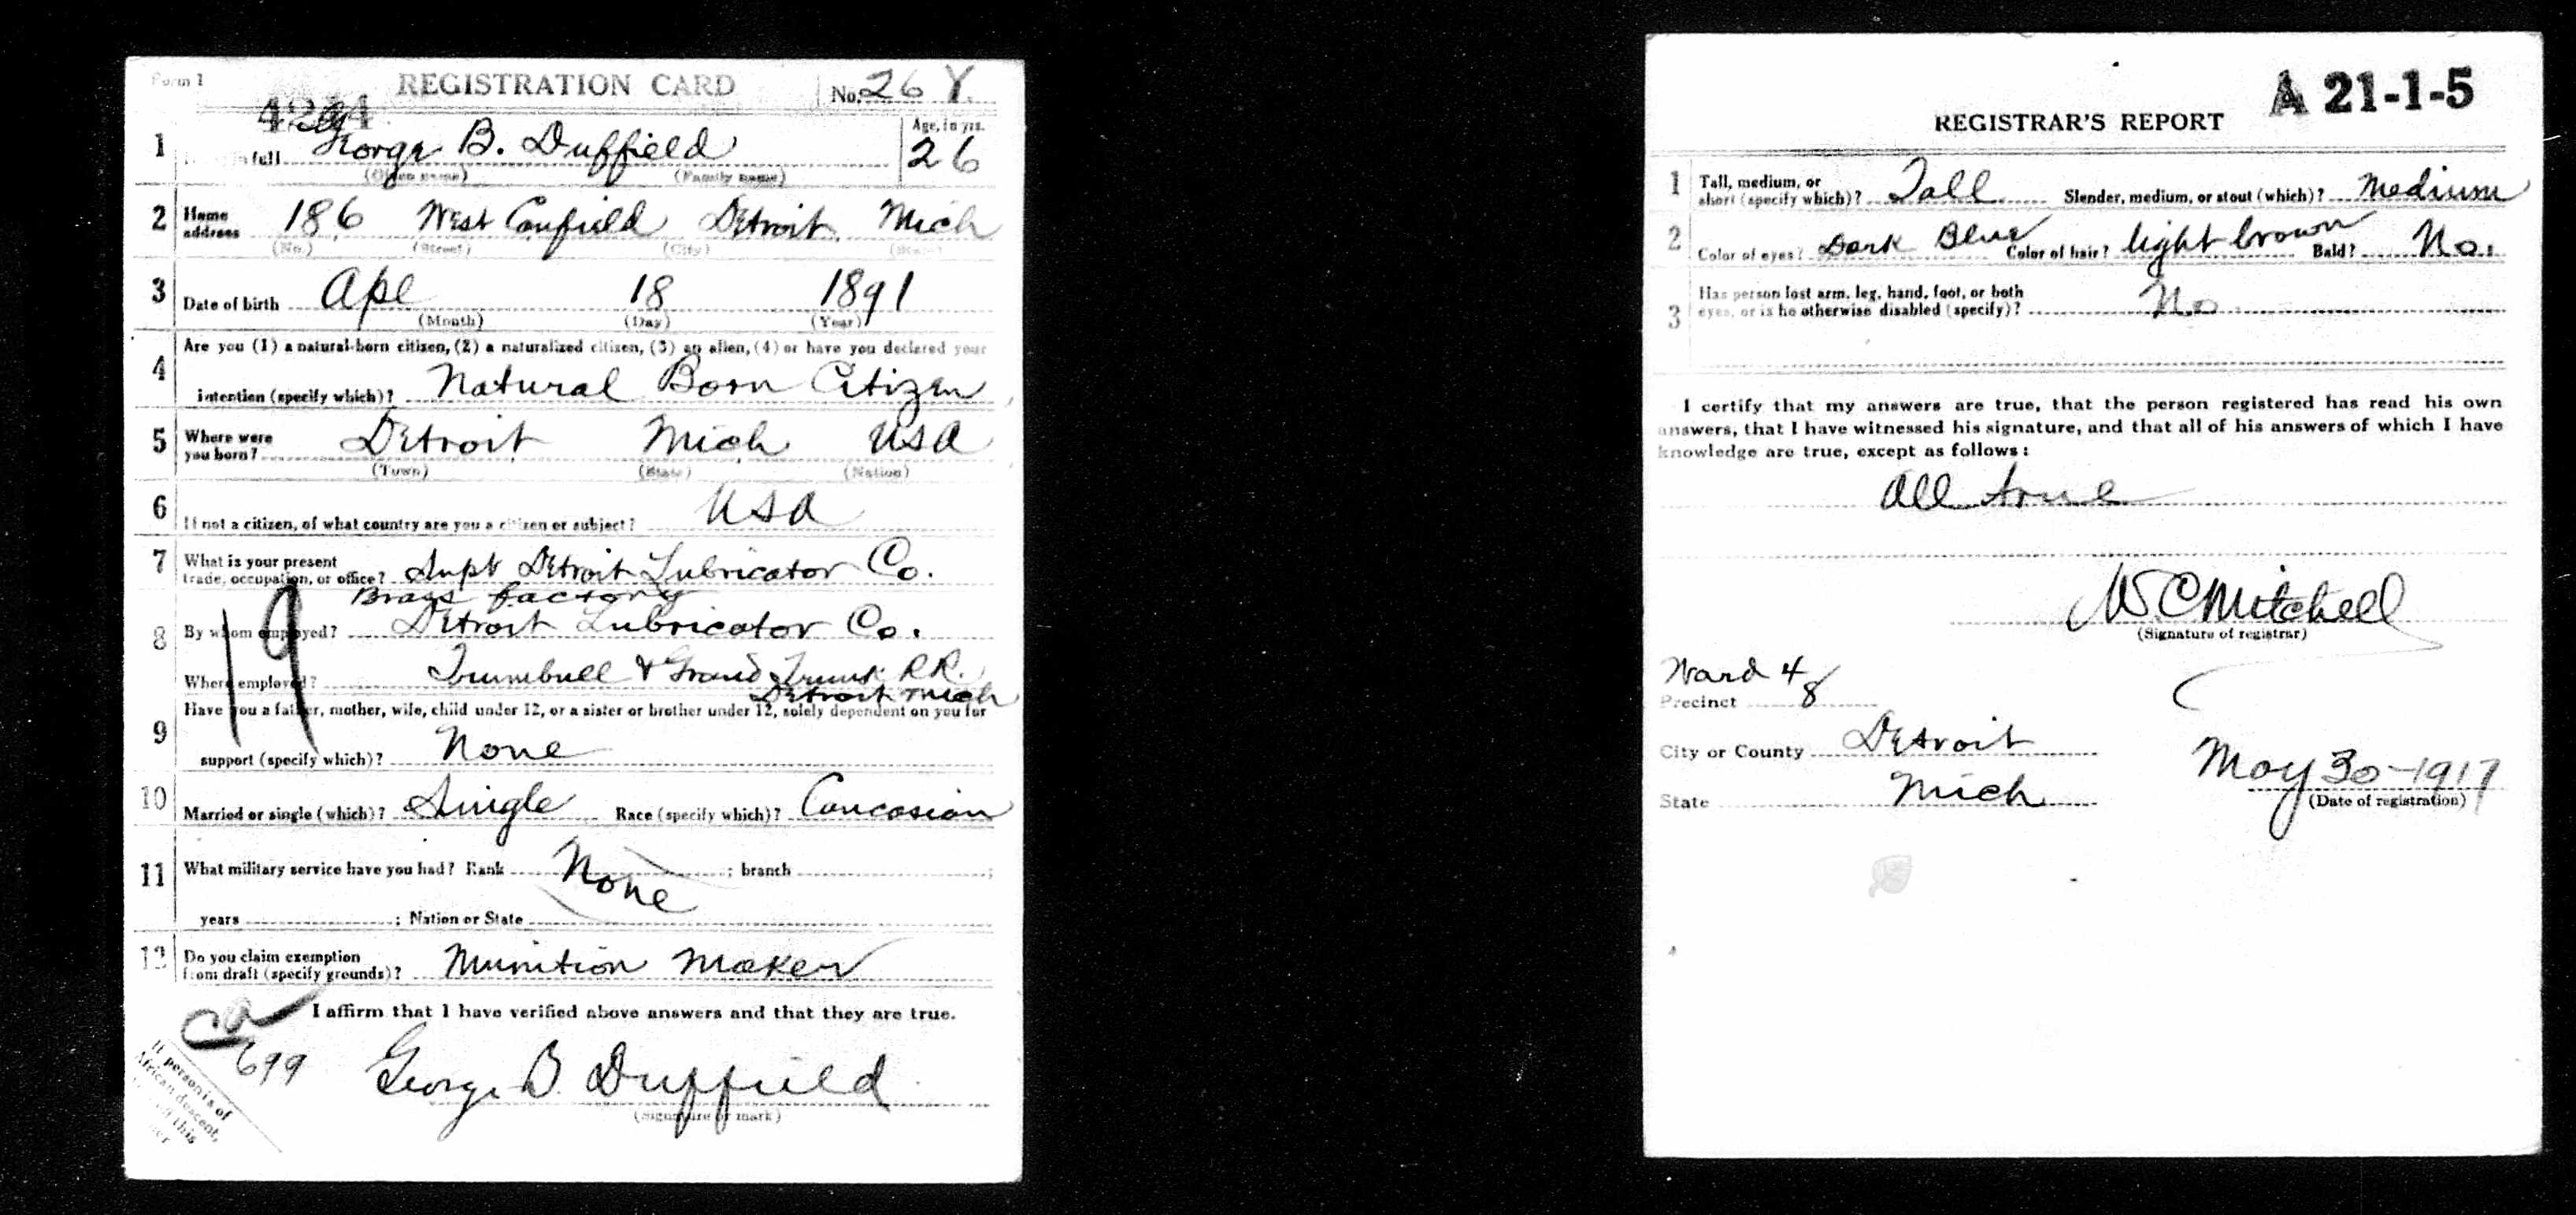 Form 1 REGISTRATION CARD No. 26 Y.
1 in full George B. Duffield Age, in yrs. 26
(Given name) (Family name)
2 Home address 186 West Canfield Detroit Mich
(No.) (Street) (City) (State)
3 Date of birth Apl 18 1891
(Month) (Day) (Year)
4 Are you (1) a natural-born citizen, (2) a naturalized citizen, (3) an alien, (4) or have you declared your
intention (specify which)? Natural Born Citizen
5 Where were you born? Detroit Mich USA
(Town) (State) (Nation)
6 If not a citizen, of what country are you a citizen or subject? USA
7 What is your present
trade, occupation, or office? Supt Detroit Lubricator Co.
Brass factory
8 By whom employed? Detroit Lubricator Co.
Where employed? Trumbull & Grand Trunk R.R.
Detroit Mich
9 Have you a father, mother, wife, child under 12, or a sister or brother under 12, solely dependent on you for
support (specify which)? None
10 Married or single (which)? Single Race (specify which)? Caucasian
11 What military service have you had? Rank None ; branch ;
years ; Nation or State
12 Do you claim exemption
from draft (specify grounds)? Munition Maker
I affirm that I have verified above answers and that they are true.
699 George B. Duffield
(Signature or mark)
If person is of
African descent,
this
19
A 21-1-5
REGISTRAR'S REPORT
1 Tall, medium, or
short (specify which)? Tall Slender, medium, or stout (which)? Medium
2 Color of eyes? Dark Blue Color of hair? light brown Bald? No.
3 Has person lost arm, leg, hand, foot, or both
eyes, or is he otherwise disabled (specify)? No
I certify that my answers are true, that the person registered has read his own
answers, that I have witnessed his signature, and that all of his answers of which I have
knowledge are true, except as follows:
All true
W C Mitchell
(Signature of registrar)
Ward 4
Precinct 8
City or County Detroit
State Mich
May 30-1917
(Date of registration)